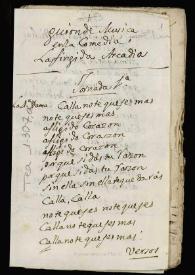 1
Guion de Musica
en la Comedia
La fingida Arcadia
Jornada 1ª
Tea 1-307,
Dama Calla no te quejes mas
no te quejes mas
afligido Corazon
afligido Corazon
afligido Corazon
porque si das tu razon
porque si das tu razon
sin ella sin ella te quedarás
Calla, Calla
no te quejes no te quejes
Calla no te quejes mas
Calla no te quejes mas
Versos